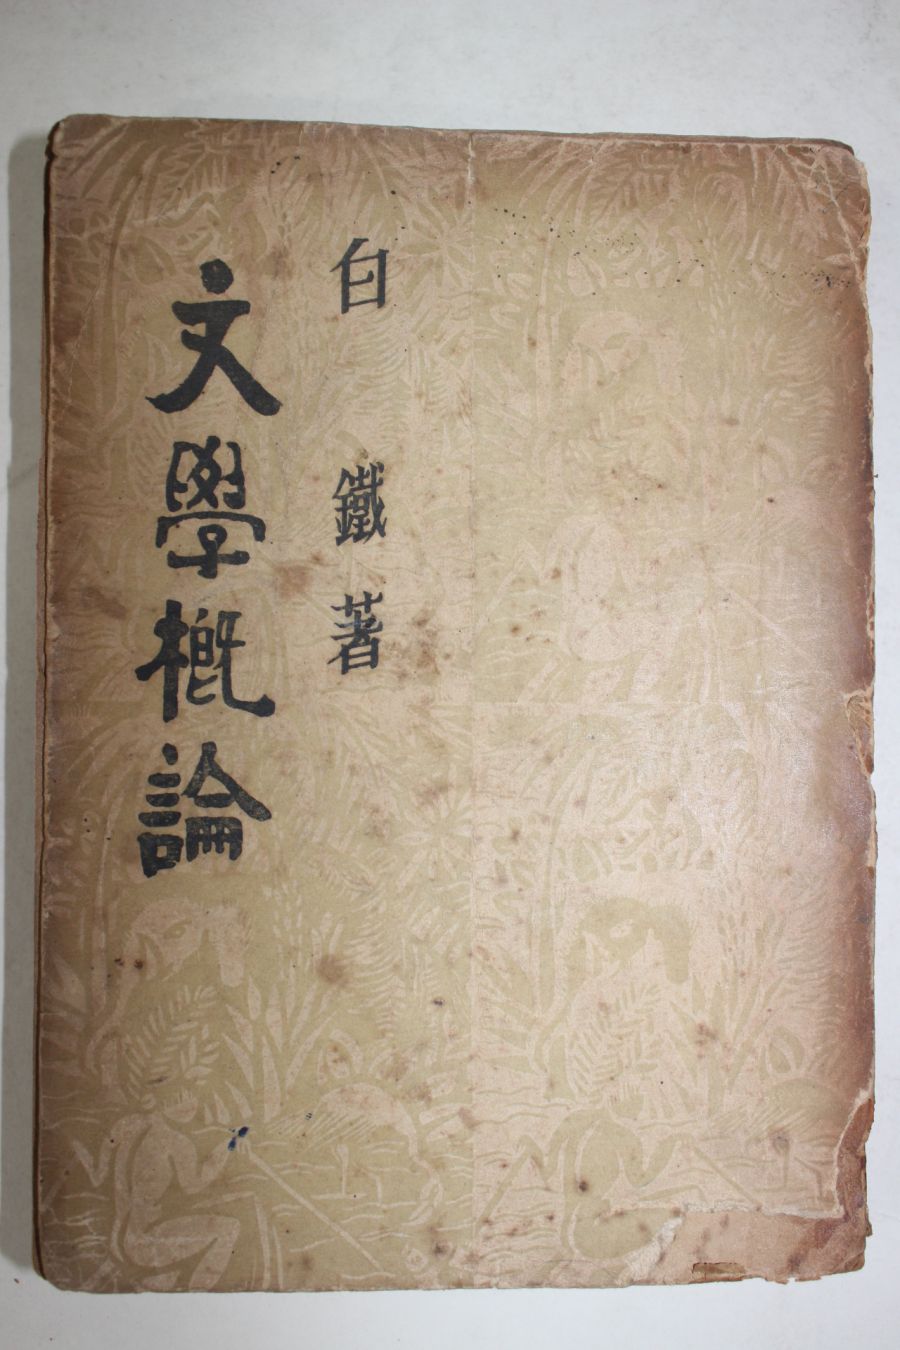 白鐵著
文學槪論